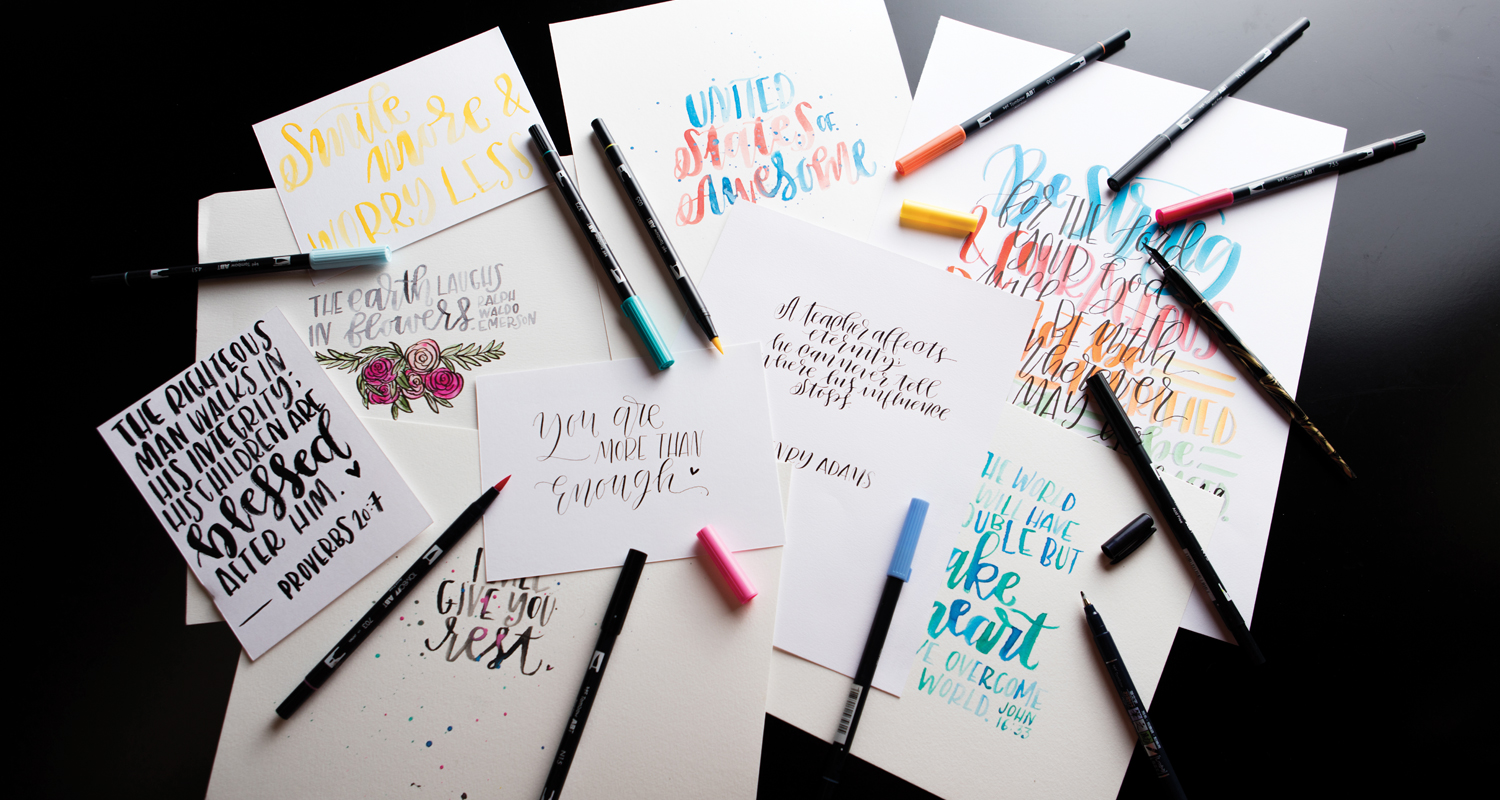 Smile
more &
WORRY LESS
UNITED
States OF
Awesome
Be Strong
& COURAGEOUS
for THE Lord
YOUR God
will
be with
wherever
MAY
be
THE earth LAUGHS
IN flowers.
RALPH
WALDO
EMERSON
THE RIGHTEOUS
MAN WALKS IN
HIS INTEGRITY;
HIS CHILDREN ARE
blessed
AFTER HIM.
— PROVERBS 20:7
you are
MORE THAN
enough
A teacher affects
eternity;
he can never tell
where his influence
stops
ADAMS
I WILL
GIVE YOU
rest.
THE WORLD
WILL HAVE
OUBLE BUT
ake
heart
'VE OVERCOME
WORLD.
JOHN
16:33